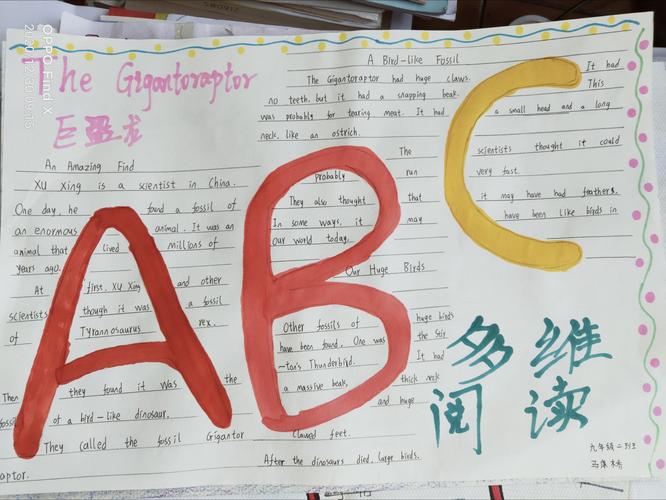 OPPO Find X
The Gigantoraptor
An Amazing Find
XU Xing is a scientist in China.
One day, he found a fossil of
an enormous animal. It was an
animal that lived millions of
years ago.
At first, XU Xing and other
scientists though it was a fossil
of Tyrannosaurus rex.
Then they found it was the
fossil of a bird-like dinosaur.
They called the fossil Gigantor
aptor.
A Bird-Like Fossil
The Gigantoraptor had huge claws. It had
no teeth, but it had a snapping beak. This
was probably for tearing meat. It had a small head and a long
neck, like an ostrich.
The scientists thought it could
probably run very fast.
They also thought that it may have had feathers.
In some ways, it may have been like birds in
our world today.
Our Huge Birds
Other fossils of huge birds
have been found. One was the Stir
-ton's Thunderbird. It had
a massive beak, thick neck
and huge
clawed feet.
After the dinosaurs died, large birds.
ABC
多维
阅读
九年级二班